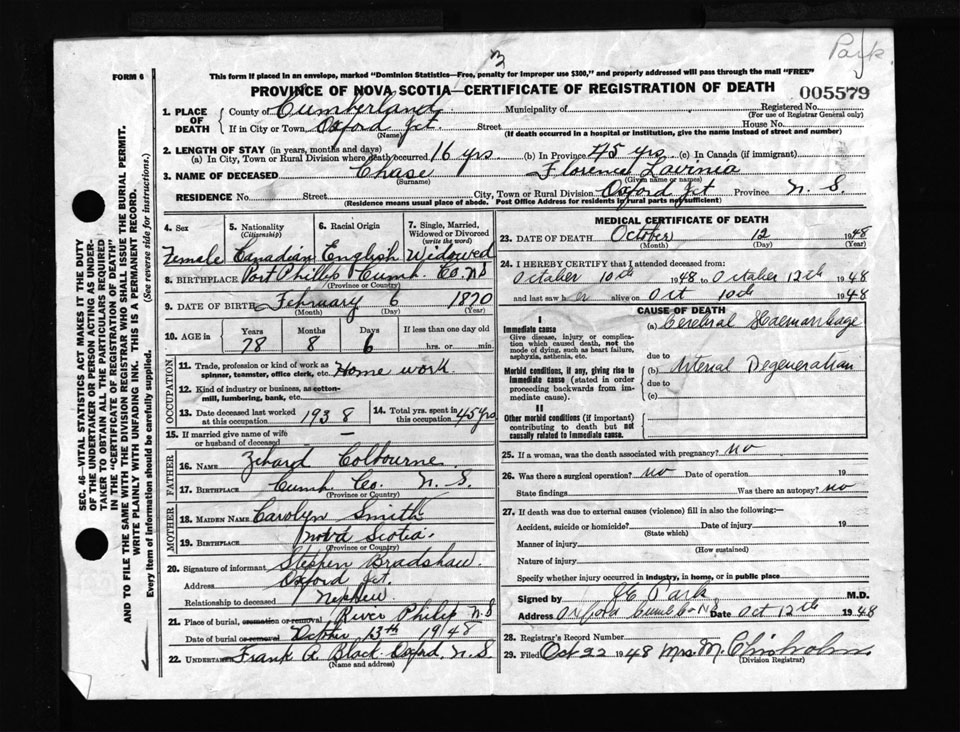 3
Park
FORM 6
This form if placed in an envelope, marked "Dominion Statistics—Free, penalty for improper use $300," and properly addressed will pass through the mail "FREE"
PROVINCE OF NOVA SCOTIA—CERTIFICATE OF REGISTRATION OF DEATH
005579
1. PLACE OF DEATH County of Cumberland Municipality of Registered No.
(For use of Registrar General only)
If in City or Town, Oxford Jct. Street House No.
(Name) (If death occurred in a hospital or institution, give the name instead of street and number)
2. LENGTH OF STAY (in years, months and days)
(a) In City, Town or Rural Division where death occurred 16 yrs. (b) In Province 45 yrs. (c) In Canada (if immigrant)
3. NAME OF DECEASED Chase Florence Lavinia
(Surname) (Given name or names)
RESIDENCE No. Street City, Town or Rural Division Oxford Jct Province N. S.
(Residence means usual place of abode. Post Office Address for residents in rural parts not sufficient)
4. Sex 5. Nationality (Citizenship) 6. Racial Origin 7. Single, Married, Widowed or Divorced (write the word)
Female Canadian English Widowed
8. BIRTHPLACE Port Phillip Cumb. Co. N S
(Province or Country)
9. DATE OF BIRTH February 6 1870
(Month) (Day) (Year)
10. AGE in Years Months Days If less than one day old
78 8 6 hrs. or min.
OCCUPATION
11. Trade, profession or kind of work as spinner, teamster, office clerk, etc. Home work.
12. Kind of industry or business, as cotton-mill, lumbering, bank, etc.
13. Date deceased last worked at this occupation 1938 14. Total yrs. spent in this occupation 45 yrs.
15. If married give name of wife or husband of deceased —
FATHER
16. NAME Colbourne
17. BIRTHPLACE Cumb. Co. N. S.
(Province or Country)
MOTHER
18. MAIDEN NAME Carolyn Smith
19. BIRTHPLACE Nova Scotia.
(Province or Country)
20. Signature of informant Stephen Bradshaw.
Address Oxford Jct.
Relationship to deceased Nephew
21. Place of burial, cremation or removal River Philip N S
Date of burial or removal 13th 1948
22. UNDERTAKER Frank A. Black. Oxford, N. S
(Name and address)
MEDICAL CERTIFICATE OF DEATH
23. DATE OF DEATH October 12 1948
(Month) (Day) (Year)
24. I HEREBY CERTIFY that I attended deceased from:
October 10th 1948 to October 12th 1948
and last saw her alive on Oct 10th 1948
CAUSE OF DEATH
I
Immediate cause (a) Cerebral Haemorrhage
Give disease, injury or complication which caused death, not the mode of dying, such as heart failure, asphyxia, asthenia, etc.
due to
Morbid conditions, if any, giving rise to immediate cause (stated in order proceeding backwards from immediate cause). (b) Arterial Degeneration
due to
(c)
II
Other morbid conditions (if important) contributing to death but not causally related to immediate cause.
25. If a woman, was the death associated with pregnancy? no
26. Was there a surgical operation? no Date of operation 19
State findings Was there an autopsy? no
27. If death was due to external causes (violence) fill in also the following:—
Accident, suicide or homicide? Date of injury 19
(State which)
Manner of injury
(How sustained)
Nature of injury
Specify whether injury occurred in industry, in home, or in public place
Signed by Park M.D.
Address Oxford Cumb Co NS Date Oct 12th 1948
28. Registrar's Record Number
29. Filed Oct 22 1948 Mrs. M. Chisholm.
(Division Registrar)
SEC. 46—VITAL STATISTICS ACT MAKES IT THE DUTY
OF THE UNDERTAKER OR PERSON ACTING AS UNDER-
TAKER TO OBTAIN ALL THE PARTICULARS REQUIRED
IN THE "CERTIFICATE OF REGISTRATION OF DEATH"
AND TO FILE THE SAME WITH THE DIVISION REGISTRAR WHO SHALL ISSUE THE BURIAL PERMIT.
WRITE PLAINLY WITH UNFADING INK. THIS IS A PERMANENT RECORD.
Every item of information should be carefully supplied. (See reverse side for instructions.)